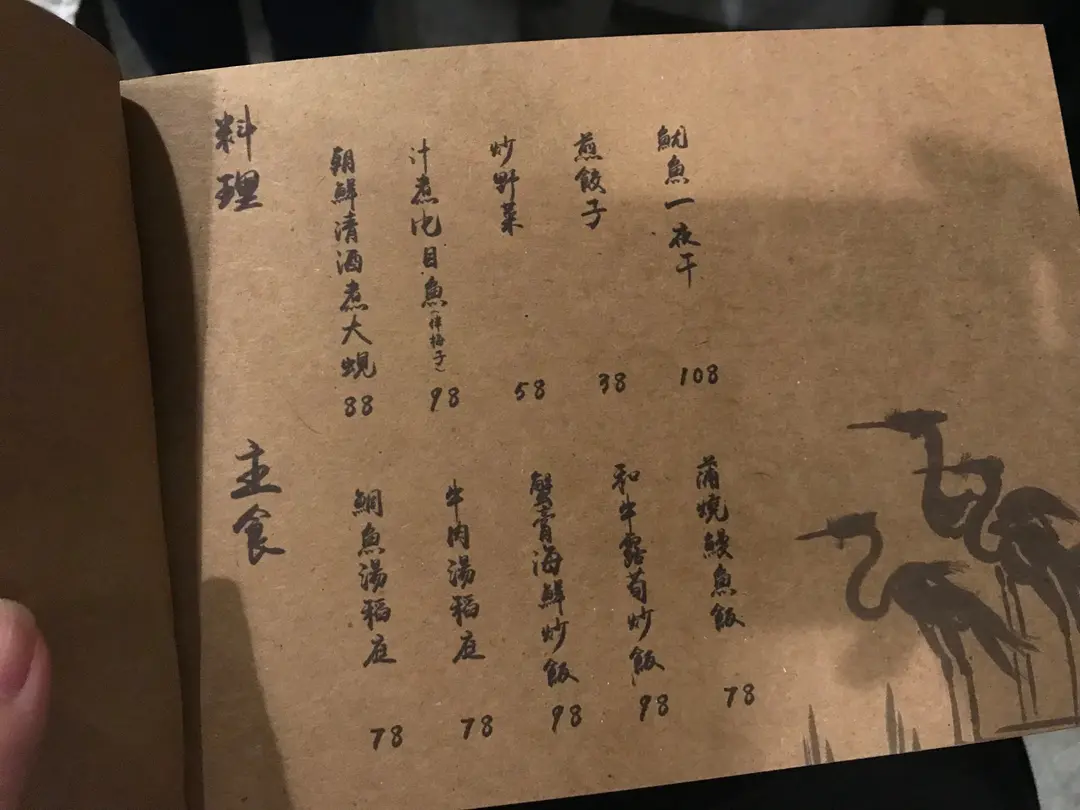 料理
朝鮮清酒煮大蜆 88
汁煮比目魚(伴梅子) 98
炒野菜 58
煎餃子 38
魷魚一夜干 108
主食
鯛魚湯稻庭 78
牛肉湯稻庭 78
蟹膏海鮮炒飯 98
和牛露荀炒飯 98
蒲燒鰻魚飯 78